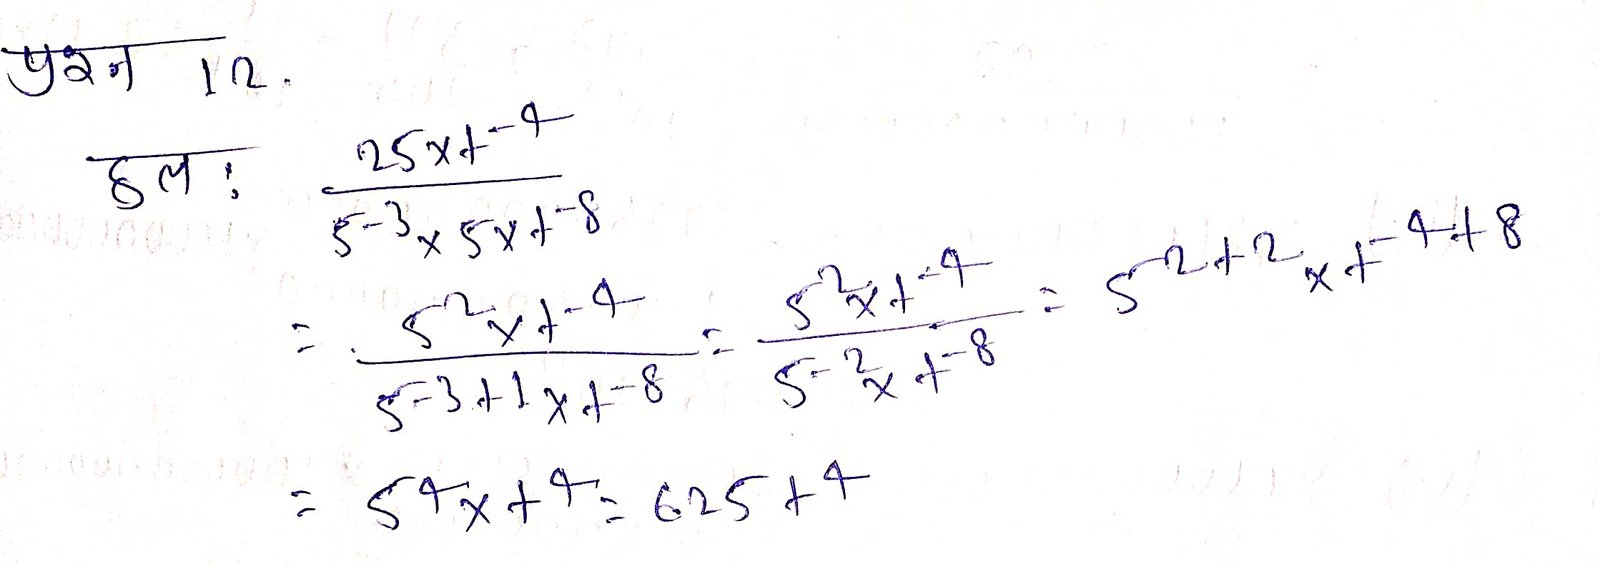 प्रश्न 12.
हल: \frac{25 \times t^{-4}}{5^{-3} \times 5 \times t^{-8}}
= \frac{5^{2} \times t^{-4}}{5^{-3+1} \times t^{-8}} = \frac{5^{2} \times t^{-4}}{5^{-2} \times t^{-8}} = 5^{2+2} \times t^{-4+8}
= 5^{4} \times t^{4} = 625 t^{4}